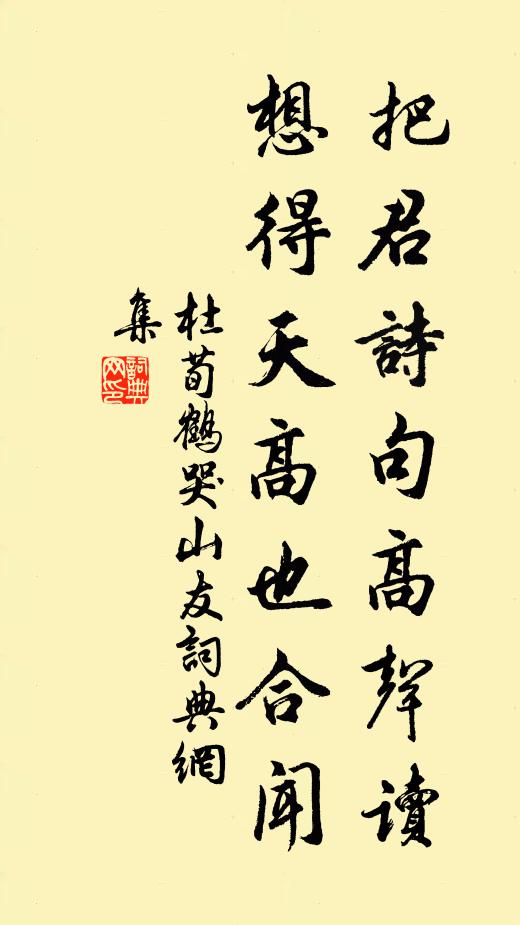 把君詩句高聲讀
想得天高也合聞
杜荀鶴哭山友詞典網
集
詞典网印